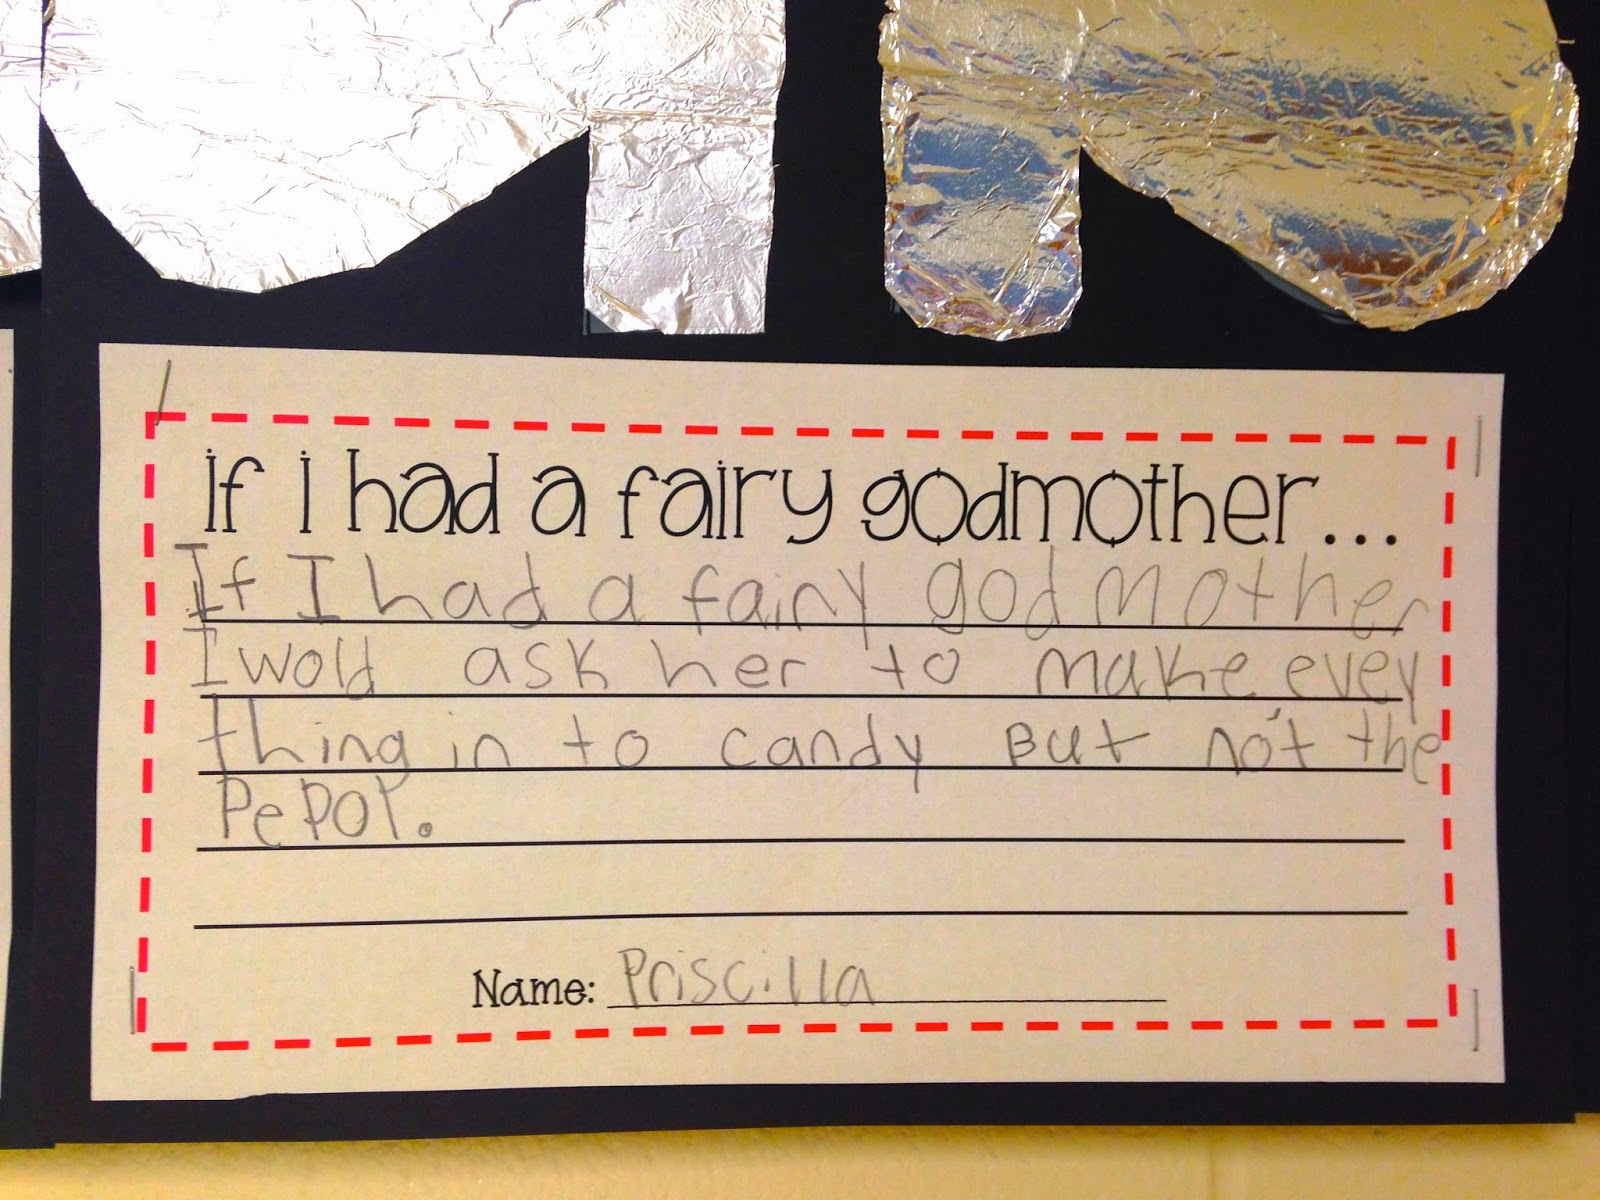 If i had a fairy godmother...
If I had a fairy god mother
I wold ask her to make evey
thing in to candy But not the
PePOP.
Name: Priscilla